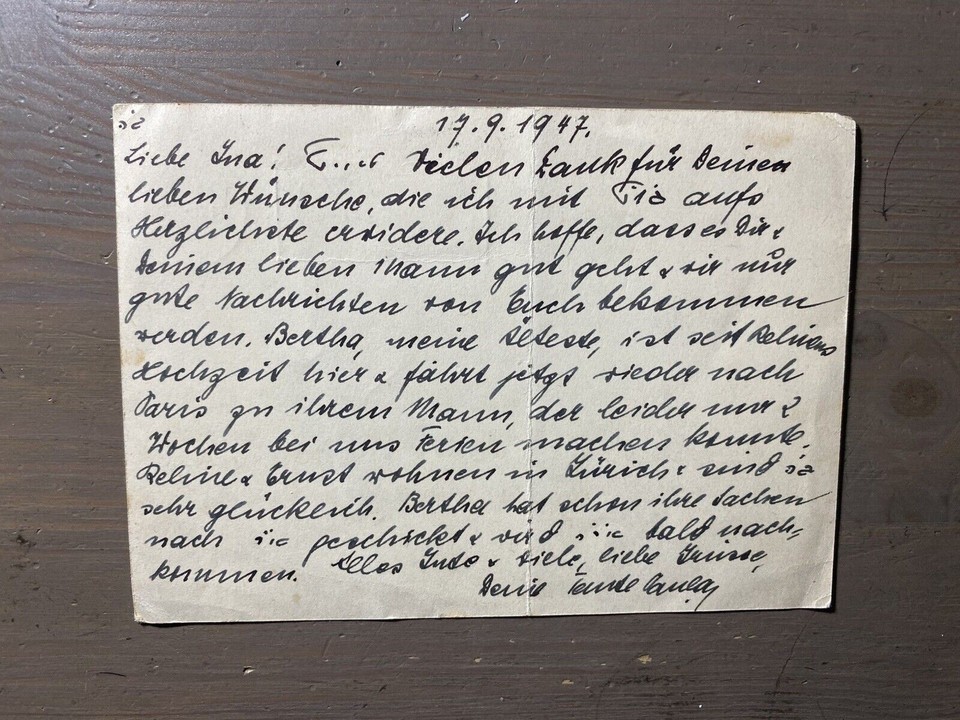 17.9.1947.
Liebe Ina! Vielen Dank für Deinen
lieben Wünsche, die ich mit aufs
Herzlichste erwidere. Ich hoffe, dass es Dir &
Deinem lieben Mann gut geht & wir nur
gute Nachrichten von Euch bekommen
werden. Bertha, meine Älteste, ist seit Relines
Hochzeit hier & fährt jetzt wieder nach
Paris zu ihrem Mann, der leider nur 2
Wochen bei uns Ferien machen konnte.
Reline & Ernst wohnen in Zürich & sind
sehr glücklich. Bertha hat schon ihre Sachen
nach geschickt & wird bald nach-
kommen. Alles Gute & viele, liebe Grüsse,
Deine Tante